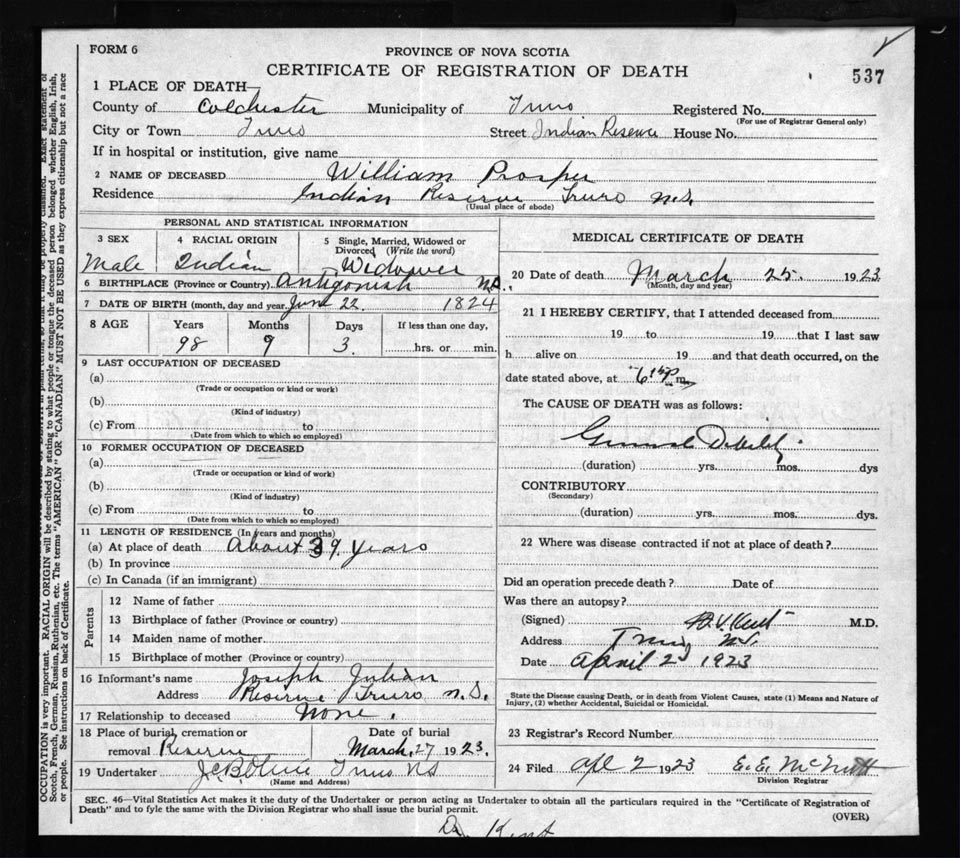 FORM 6
PROVINCE OF NOVA SCOTIA
CERTIFICATE OF REGISTRATION OF DEATH
537
1 PLACE OF DEATH—
County of Colchester Municipality of Truro Registered No.
(For use of Registrar General only)
City or Town Truro Street Indian Reserve House No.
If in hospital or institution, give name
2 NAME OF DECEASED William Prosper
Residence Indian Reserve Truro N.S.
(Usual place of abode)
PERSONAL AND STATISTICAL INFORMATION
3 SEX 4 RACIAL ORIGIN 5 Single, Married, Widowed or Divorced (Write the word)
Male Indian Widower
6 BIRTHPLACE (Province or Country) Antigonish N.S.
7 DATE OF BIRTH (month, day and year) June 22 1824
8 AGE Years Months Days If less than one day,
98 9 3. hrs. or min.
9 LAST OCCUPATION OF DECEASED
(a)
(Trade or occupation or kind or work)
(b)
(Kind of industry)
(c) From to
(Date from which to which so employed)
10 FORMER OCCUPATION OF DECEASED
(a)
(Trade or occupation or kind of work)
(b)
(Kind of industry)
(c) From to
(Date from which to which so employed)
11 LENGTH OF RESIDENCE (In years and months)
(a) At place of death About 39 years
(b) In province
(c) In Canada (if an immigrant)
Parents
12 Name of father
13 Birthplace of father (Province or country)
14 Maiden name of mother
15 Birthplace of mother (Province or country)
16 Informant's name Joseph Julian
Address Reserve Truro N.S.
17 Relationship to deceased None.
18 Place of burial, cremation or removal Reserve Date of burial March 27 1923.
19 Undertaker Truro NS
(Name and Address)
MEDICAL CERTIFICATE OF DEATH
20 Date of death March 25. 1923.
(Month, day and year)
21 I HEREBY CERTIFY, that I attended deceased from
19 to 19 that I last saw
h alive on 19 and that death occurred, on the
date stated above, at 6 p m.
The CAUSE OF DEATH was as follows:
General Debility
(duration) yrs. mos. dys
CONTRIBUTORY
(Secondary)
(duration) yrs. mos. dys.
22 Where was disease contracted if not at place of death?
Did an operation precede death? Date of
Was there an autopsy?
(Signed) Kent M.D.
Address Truro N.S.
Date April 2 1923
State the Disease causing Death, or in death from Violent Causes, state (1) Means and Nature of
Injury, (2) whether Accidental, Suicidal or Homicidal.
23 Registrar's Record Number
24 Filed Apl 2 1923 E. E. McNutt
Division Registrar
SEC. 46—Vital Statistics Act makes it the duty of the Undertaker or person acting as Undertaker to obtain all the particulars required in the "Certificate of Registration of
Death" and to fyle the same with the Division Registrar who shall issue the burial permit.
(OVER)
Dr Kent
OCCUPATION is very important. RACIAL ORIGIN will be described by stating to what people or tongue the deceased person belonged whether English, Irish,
Scotch, French, German, Russian, Ruthenian, etc. The terms "AMERICAN" OR "CANADIAN" MUST NOT BE USED as they express citizenship but not a race
or people. See instructions on back of Certificate.